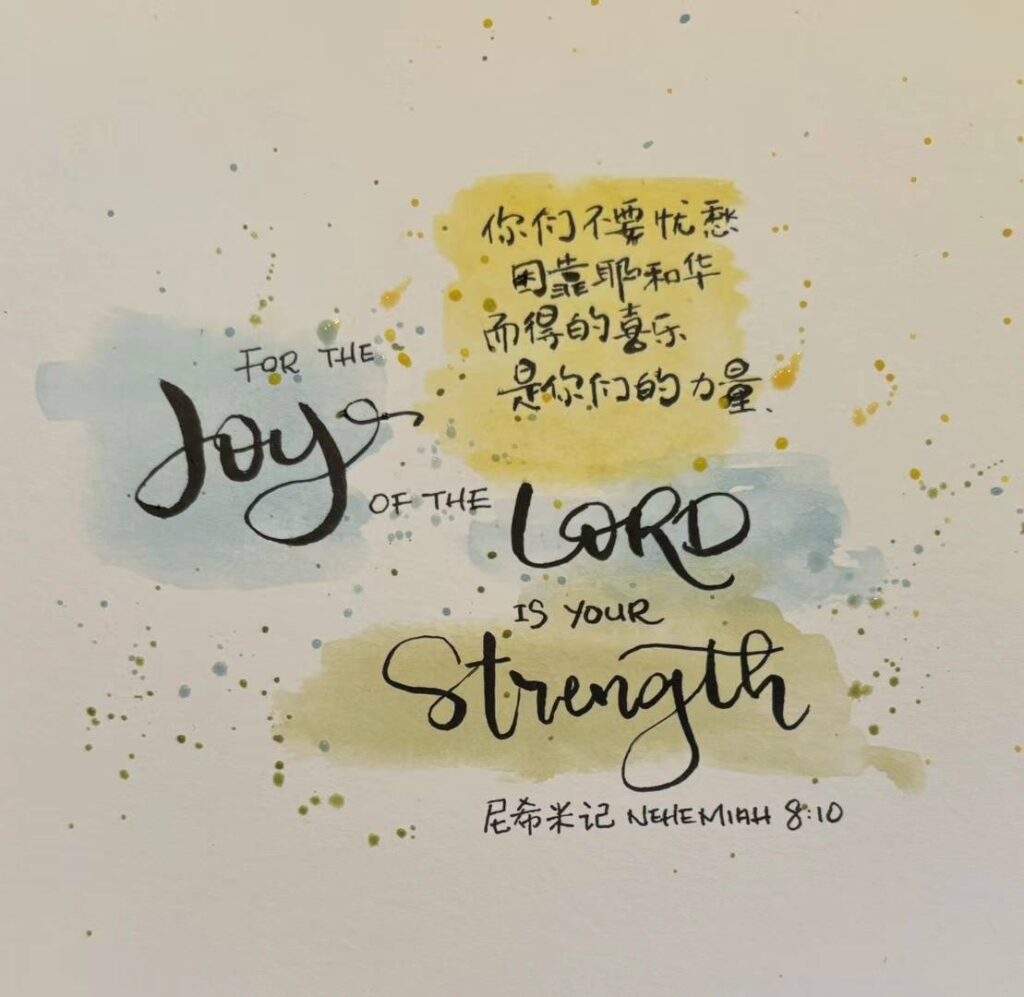 你们不要忧愁
因靠耶和华
而得的喜乐
是你们的力量.
FOR THE
Joy
OF THE LORD
IS YOUR
Strength
尼希米记 NEHEMIAH 8:10